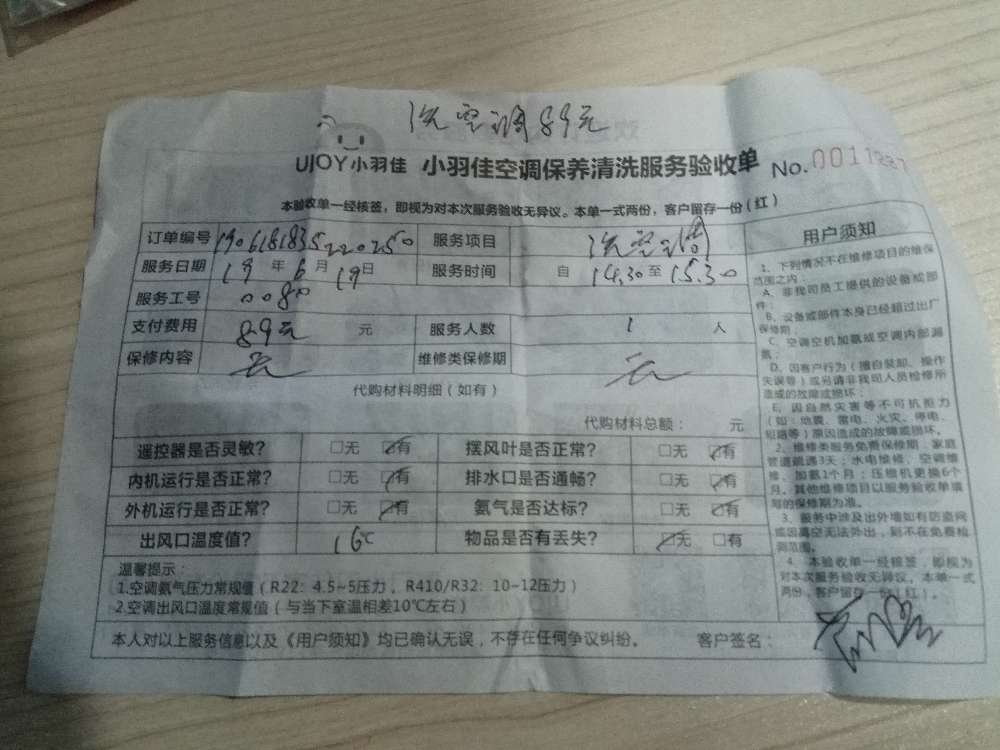 洗空调89元
UJOY小羽佳 小羽佳空调保养清洗服务验收单 No.
本验收单一经核签，即视为对本次服务验收无异议。本单一式两份，客户留存一份（红）
订单编号 服务项目 洗空调
服务日期 19年6月19日 服务时间 自14.30至15.30
服务工号 0080
支付费用 89元 元 服务人数 1 人
保修内容 无 维修类保修期 无
代购材料明细（如有）
代购材料总额： 元
遥控器是否灵敏？ □无 ☑有 摆风叶是否正常？ □无 ☑有
内机运行是否正常？ □无 ☑有 排水口是否通畅？ □无 ☑有
外机运行是否正常？ □无 ☑有 氨气是否达标？ □无 ☑有
出风口温度值？ 16℃ 物品是否有丢失？ ☑无 □有
温馨提示：
1.空调氨气压力常规值（R22：4.5~5压力，R410/R32：10-12压力）
2.空调出风口温度常规值（与当下室温相差10℃左右）
本人对以上服务信息以及《用户须知》均已确认无误，不存在任何争议纠纷。 客户签名：
用户须知
1、下列情况不在维修项目的维保
范围之内：
A、非我司员工提供的设备或部
件；
B、设备或部件本身已经超过出厂
保修期；
C、空调空机加氨或空调内部漏
氨；
D、因客户行为（擅自装卸、操作
失误等）或另请非我司人员检修所
造成的故障或损坏；
E、因自然灾害等不可抗拒力
（如：地震、雷电、火灾、停电、
短路等）原因造成的故障或损坏。
2、维修类服务免费保修期：家庭
管道疏通3天；水电维修、空调维
修、加氨1个月；压缩机更换6个
月。其他维修项目以服务验收单填
写的保修期为准。
3、服务中涉及出外墙如有防盗网
或因高空无法外出，则不在免费检
测范围。
4、本验收单一经核签，即视为
对本次服务验收无异议。本单一式
两份，客户留存一份（红）。